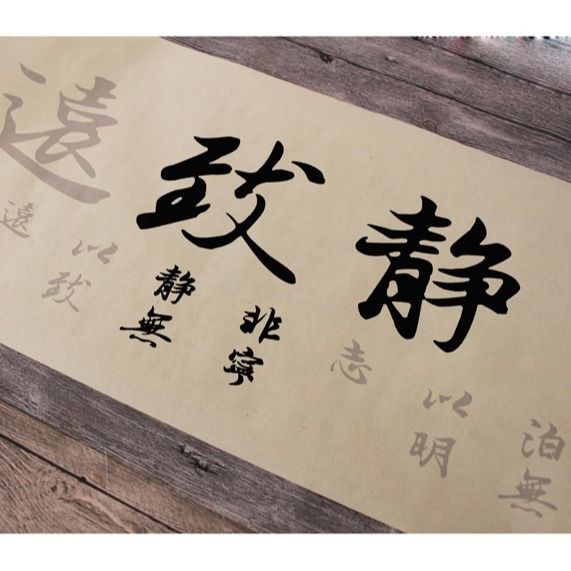 静致遠
泊無
以明
志
非寧
静無
以致
遠